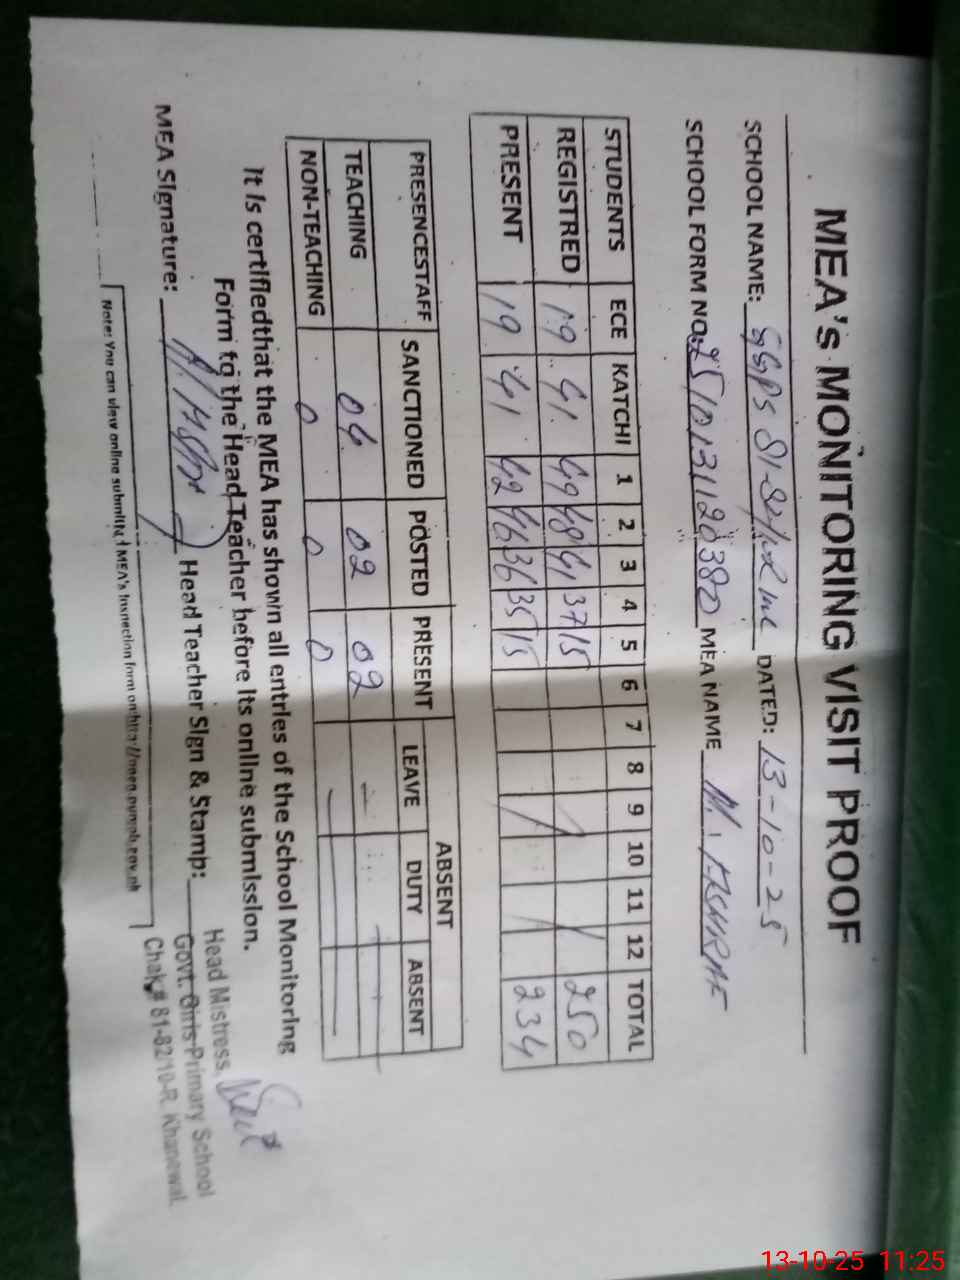 MEA's MONITORING VISIT PROOF
SCHOOL NAME: GGPS 81-82/10R DATED: 13-10-25
SCHOOL FORM NO. MEA NAME M. ASHRAF
STUDENTS ECE KATCHI 1 2 3 4 5 6 7 8 9 10 11 12 TOTAL
REGISTRED 19 41 49 48 41 37 15 250
PRESENT 19 41 42 46 36 35 15 234
ABSENT
PRESENCESTAFF SANCTIONED POSTED PRESENT LEAVE DUTY ABSENT
TEACHING 04 02 02
NON-TEACHING 0 0 0
It is certifiedthat the MEA has shown all entries of the School Monitoring
Form to the Head Teacher before its online submission.
MEA Signature: Head Teacher Sign & Stamp:
Head Mistress
Govt. Girls Primary School
Chak# 81-82/10-R, Khanewal.
Note: You can view online submitted MEA's Inspection form on
13-10-25 11:25